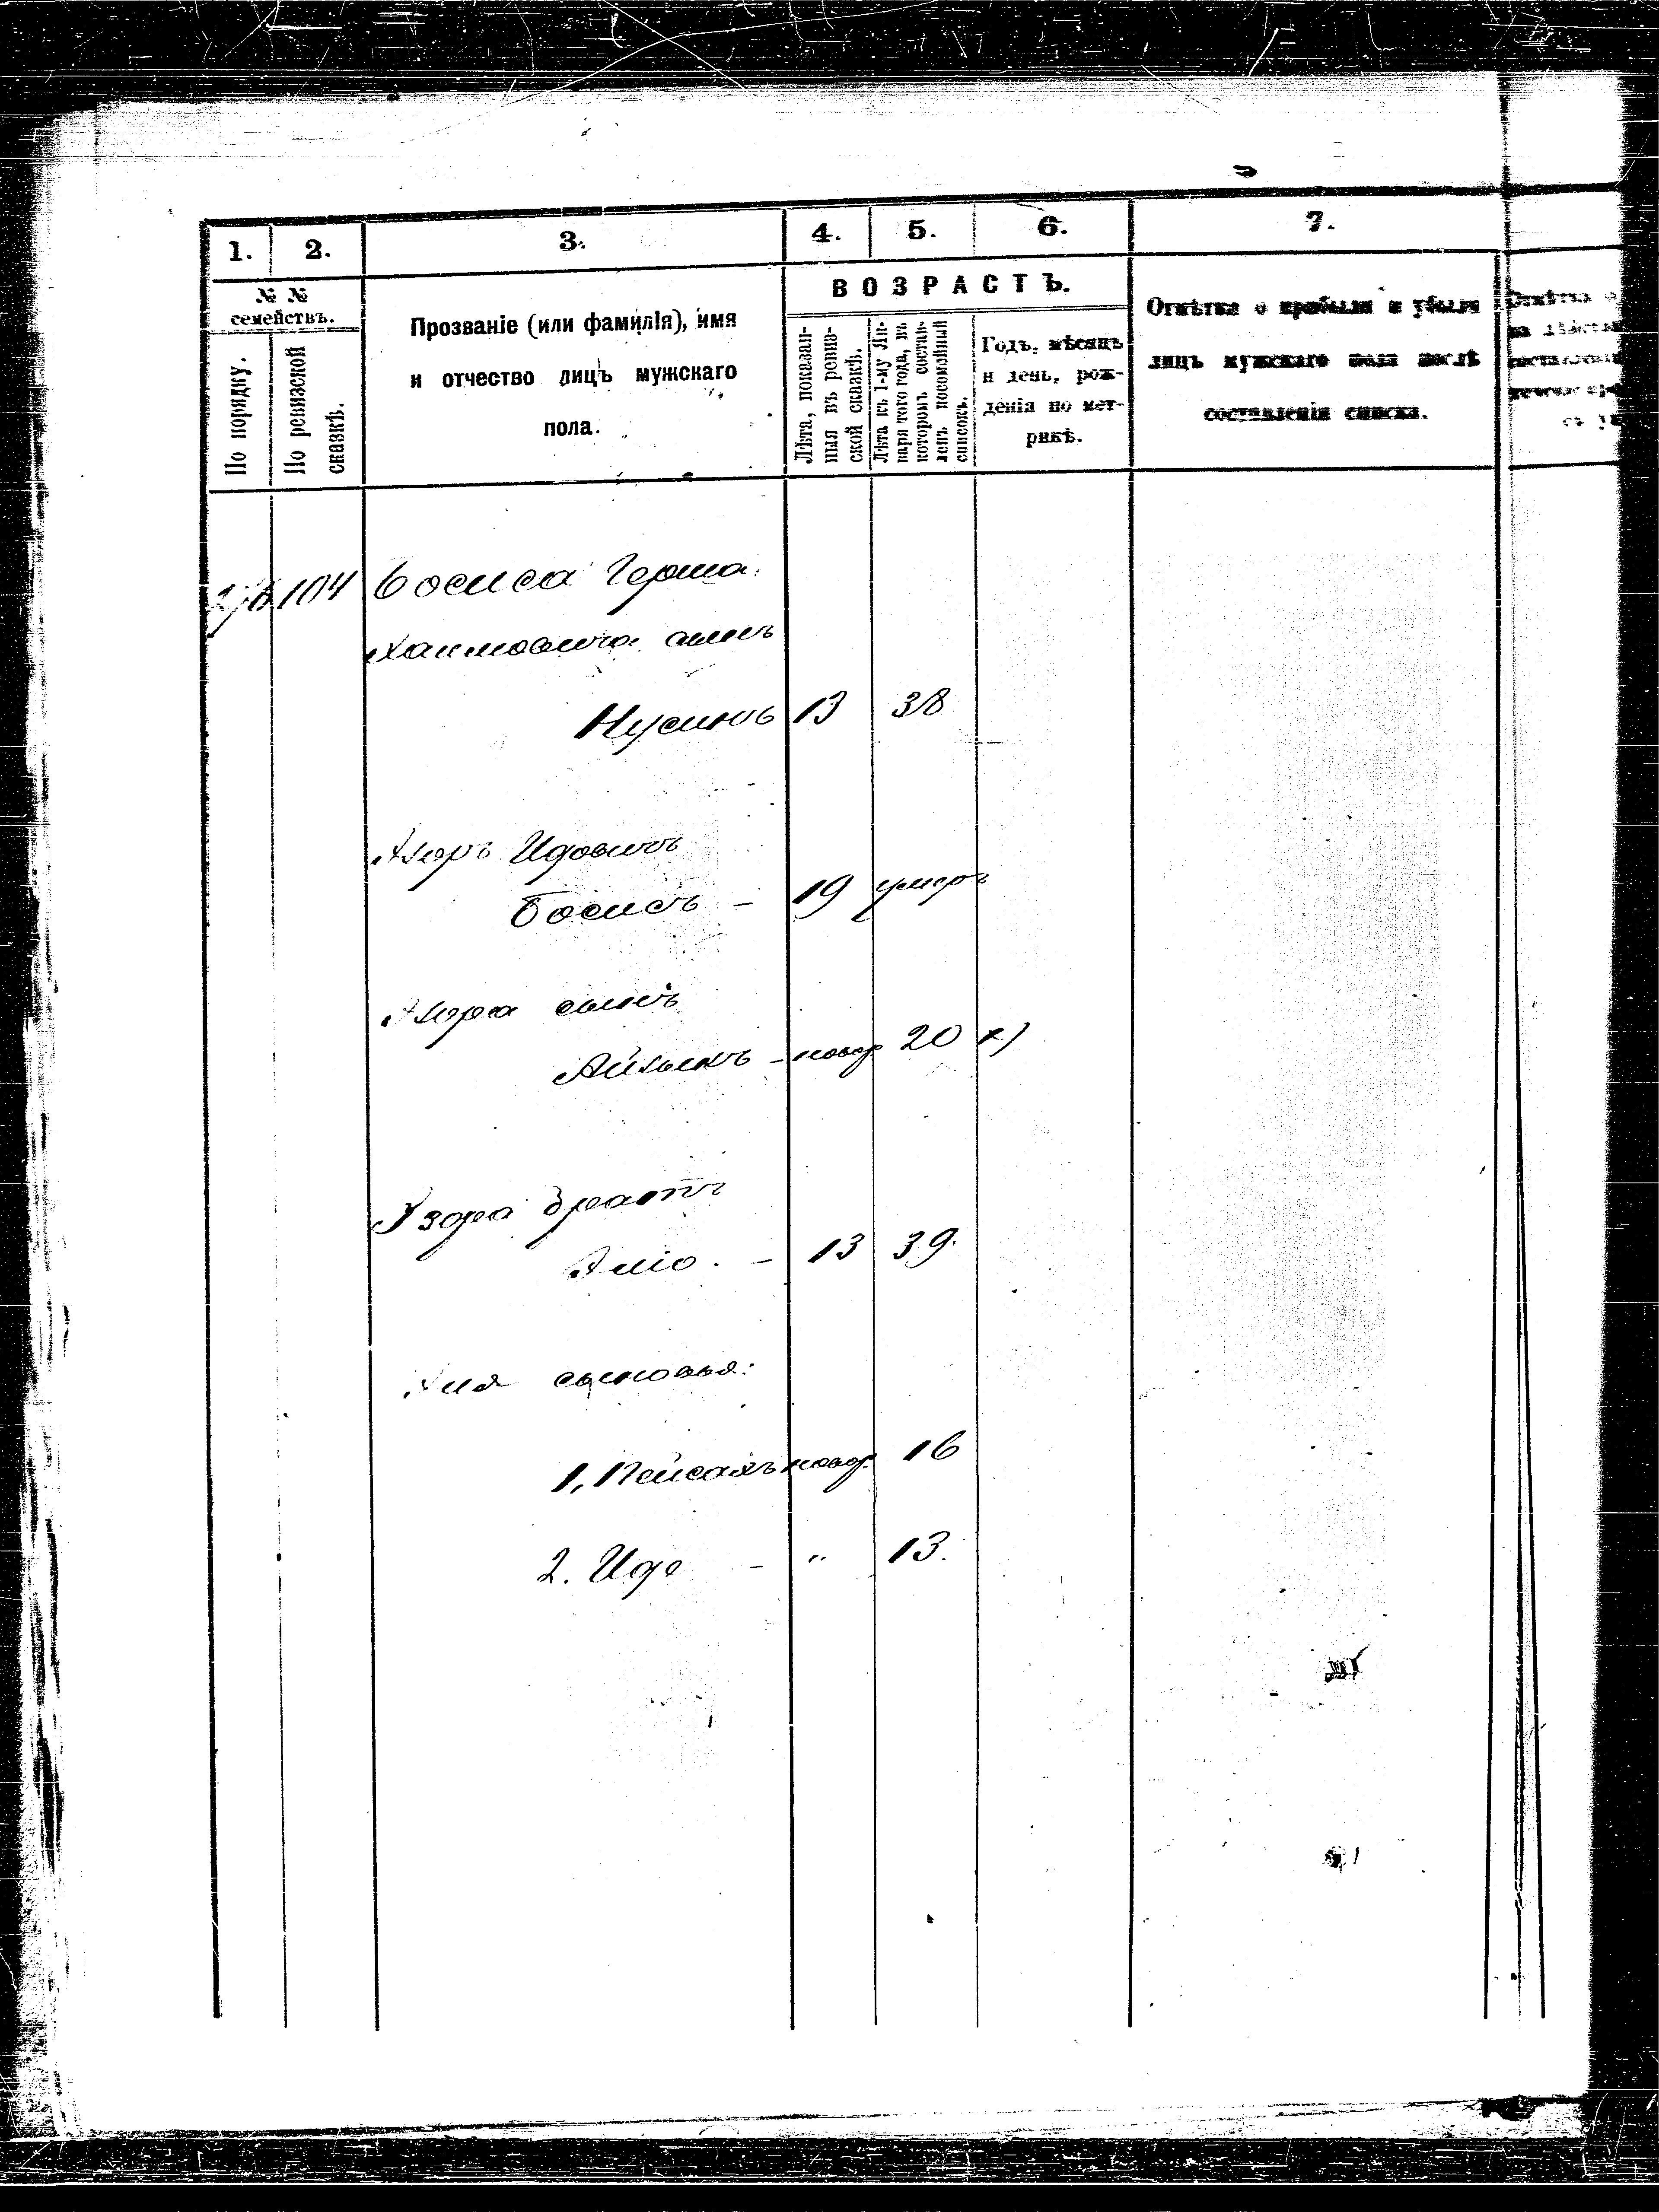 1. 2. 3. 4. 5. 6. 7.
№ №
семействъ.
По порядку.
По ревизской
сказкѣ.
Прозваніе (или фамилія), имя
и отчество лицъ мужскаго
пола.
ВОЗРАСТЪ.
Лѣта, показан-
ныя въ ревиз-
ской сказкѣ.
Лѣта къ 1-му Ян-
варя того года, въ
которомъ состав-
ленъ посемейный
списокъ.
Годъ, мѣсяцъ
и день, рож-
денія по мет-
рикѣ.
Отмѣтка о прибыли и убыли
лицъ мужскаго пола послѣ
составленія списка.
104 Босиса Герша
Хаимовича сынъ
Нусинъ 13 38
Идовичъ
Босисъ - 19 умеръ
сынъ
Айзыкъ - новор 20
Узора братъ
13 39.
сыновья:
1, Пейсахъ новор. 16
2. Иде - " 13.